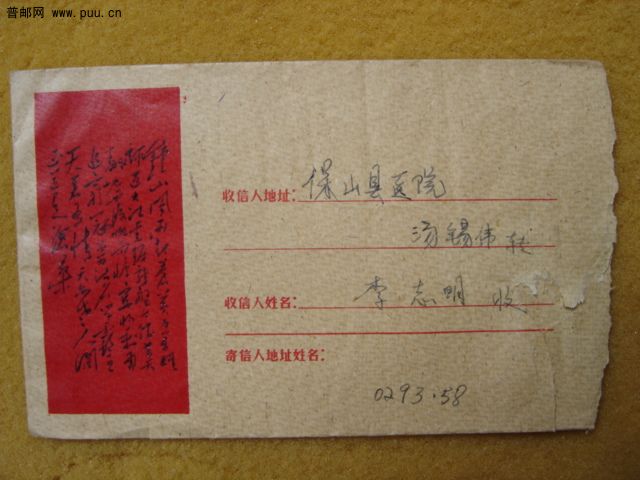 普邮网 www.puu.cn
鍾山風雨起蒼黃百万雄
師过大江虎踞龍盤今勝昔天
翻地覆慨而慷宜將剩勇
追窮寇不可沽名學霸王
天若有情天亦老人间
正道是滄桑
收信人地址：保山县医院
汤锡伟转
收信人姓名：李志明 收
寄信人地址姓名：
0293.58